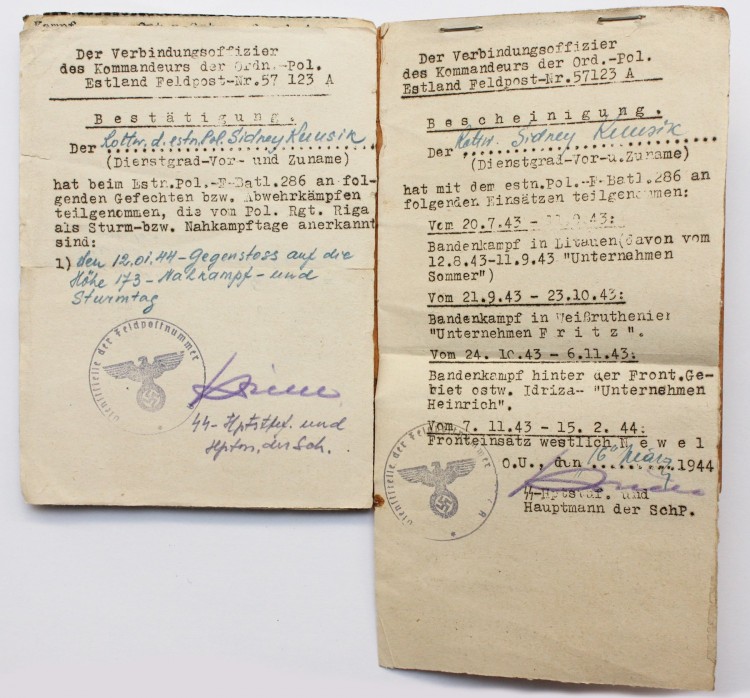 Der Verbindungsoffizier
des Kommandeurs der Ordn.-Pol.
Estland Feldpost-Nr.57 123 A
Bestätigung.
Der Rottw. d. estn. Pol. Sidney Kuusik
(Dienstgrad-Vor- und Zuname)
hat beim Estn.Pol.-F-Batl.286 an fol-
genden Gefechten bzw. Abwehrkämpfen
teilgenommen, die vom Pol. Rgt. Riga
als Sturm-bzw. Nahkampftage anerkannt
sind:
1) den 12.01.44 - Gegenstoss auf die
Höhe 173 - Nahkampf - und
Sturmtag
Dienststelle der Feldpostnummer
SS-Hptstf. und
Hptm. der Sch.
Der Verbindungsoffizier
des Kommandeurs der Ord.-Pol.
Estland Feldpost-Nr.57123 A
Bescheinigung.
Der Rottw. Sidney Kuusik
(Dienstgrad-Vor-u.Zuname)
hat mit dem estn.Pol.-F-Batl.286 an
folgenden Einsätzen teilgenommen:
Vom 20.7.43 - 11.9.43:
Bandenkampf in Litauen(davon vom
12.8.43-11.9.43 "Unternahmen
Sommer")
Vom 21.9.43 - 23.10.43:
Bandenkampf in Weißruthenien
"Unternahmen F r i t z ".
Vom 24. 10.43 - 6.11.43:
Bandenkampf hinter der Front.Ge-
biet ostw. Idriza- "Unternahmen
Heinrich".
Vom 7. 11.43 - 15. 2. 44:
Fronteinsatz westlich N e w e l
O.U., den 16. März 1944
SS-Hptstuf. und
Hauptmann der SchP.
Dienststelle der Feldpostnummer